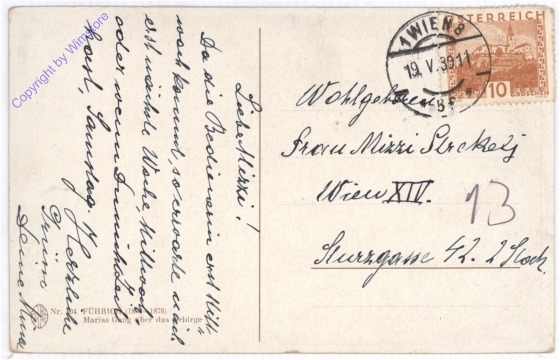 Copyright by Wimstore
Liebe Mizzi!
Da die Bedienerin erst Mitt-
woch kommt, so erwarte mich
erst nächste Woche, Mittwoch
oder wenn Du
hast, Samstag. Herzliche
Grüße
Deine
Nr. 204 FÜHRICH (1800-1876)
Marias Gang über das Gebirge
1 WIEN 8
19. V. 30 11
* 8 *
ÖSTERREICH
10 GROSCHEN
Wohlgeboren
Frau Mizzi
Wien XIV.
13
Sturzgasse 42. 2 Stock